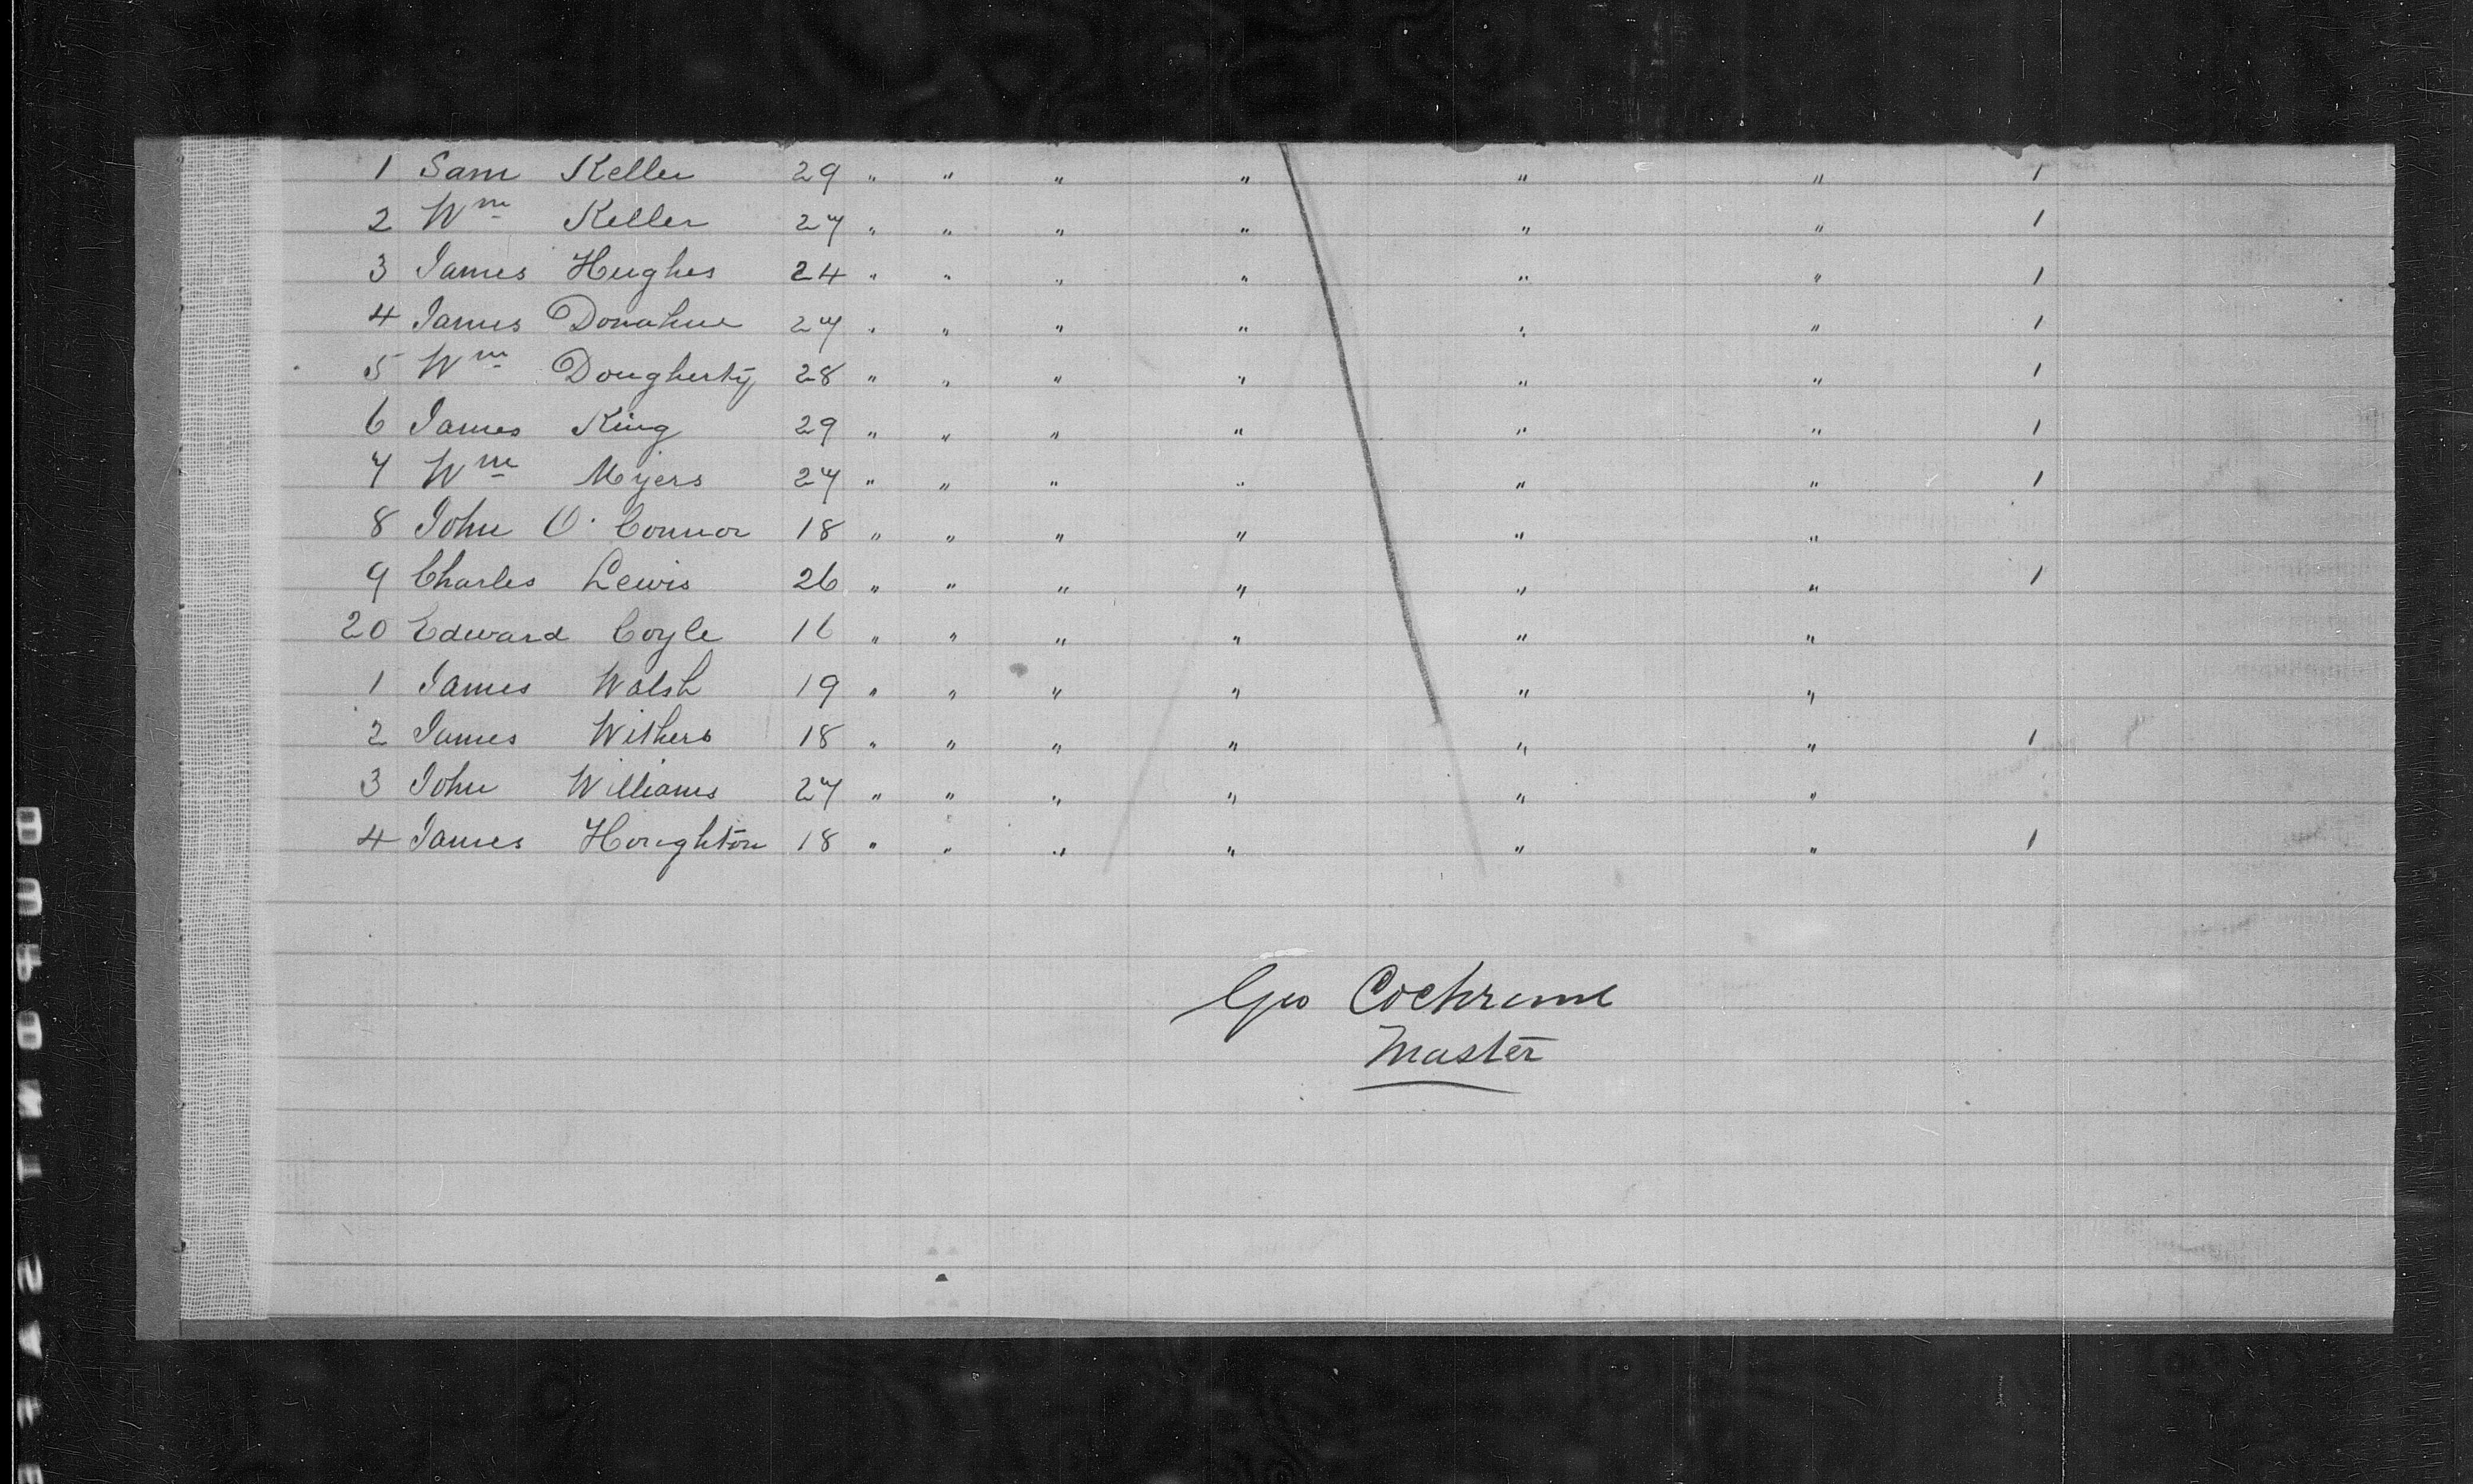 1 Sam Keller 29 " " " " " " 1
2 Wm Keller 27 " " " " " " 1
3 James Hughes 24 " " " " " " 1
4 James Donahue 27 " " " " " " 1
5 Wm Dougherty 28 " " " " " " 1
6 James King 29 " " " " " " 1
7 Wm Myers 27 " " " " " " 1
8 John O'Connor 18 " " " " " "
9 Charles Lewis 26 " " " " " " 1
20 Edward Coyle 16 " " " " " "
1 James Walsh 19 " " " " " "
2 James Withers 18 " " " " " " 1
3 John Williams 27 " " " " " "
4 James Houghton 18 " " " " " " 1
Geo Cochrane
Master